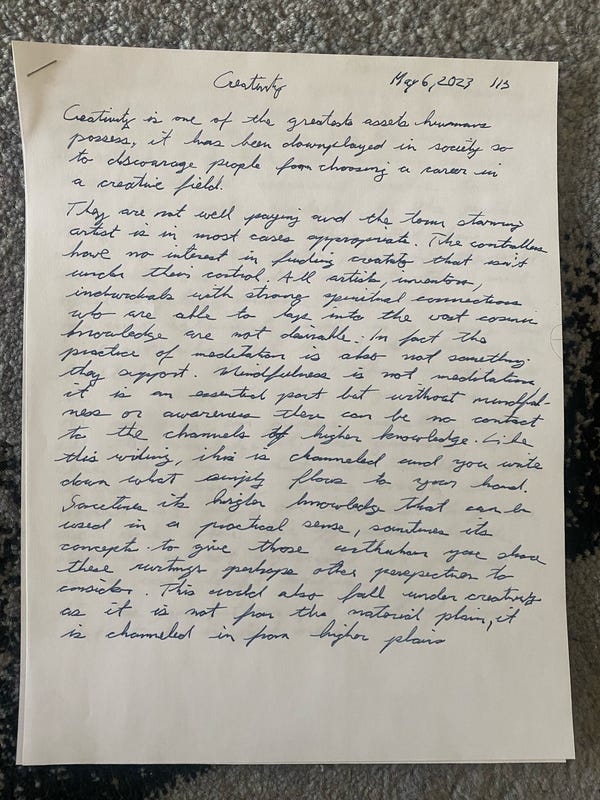 Creativity May 6, 2023 1/3
Creativity is one of the greatests assets humans
possess, it has been downplayed in society so
to discourage people from choosing a career in
a creative field.
They are not well paying and the term starving
artist is in most cases appropriate. The controllers
have no interest in funding creativity that isn't
under their control. All artists, inventors,
individuals with strong spiritual connections
who are able to tap into the vast cosmic
knowledge are not desirable. In fact the
practice of meditation is also not something
they support. Mindfulness is not meditation
it is an essential part but without mindful-
ness or awareness there can be no contact
to the channels of higher knowledge. Like
this writing, this is channeled and you write
down what simply flows to your hand.
Sometimes its higher knowledge that can be
used in a practical sense, sometimes its
concepts to give those with whom you share
these writings perhaps other perspectives to
consider. This would also fall under creativity
as it is not from the material plain, it
is channeled in from higher plains